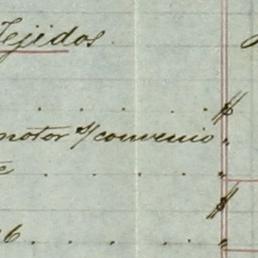 Tejidos.
. . . . $
motor s/ convenio "
. . . . "
$
6 . . . . "